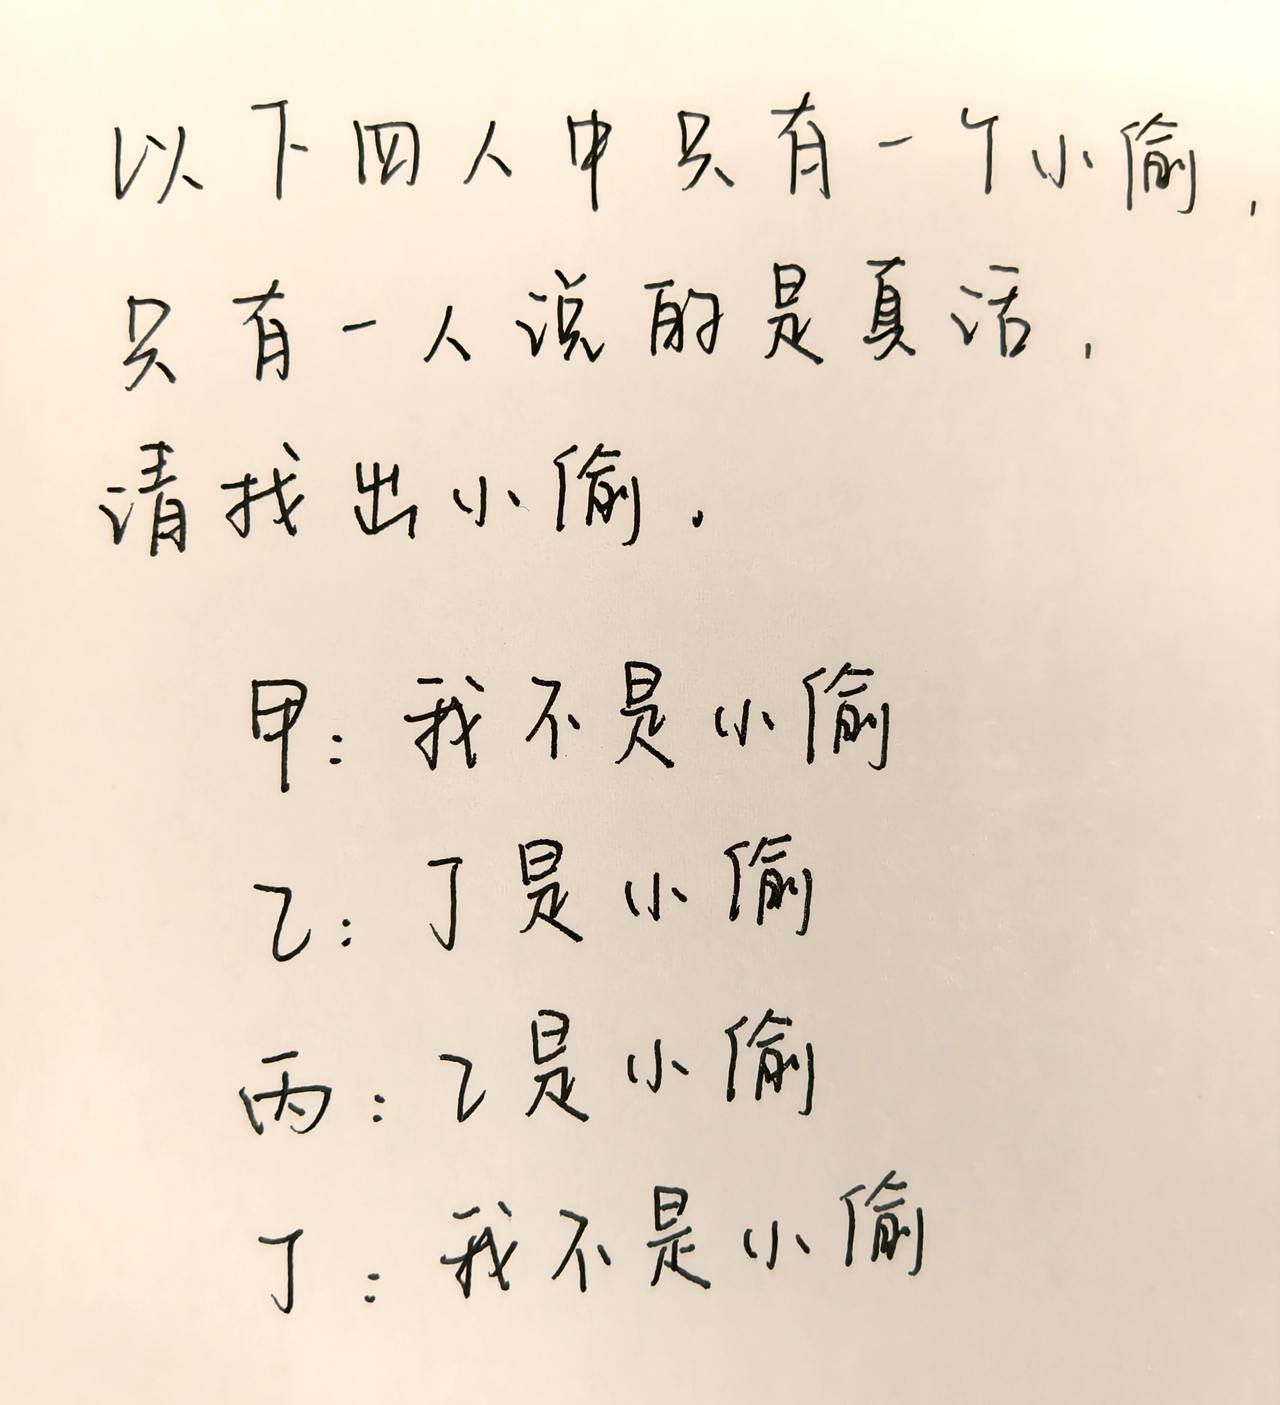 以下四人中只有一个小偷,
只有一人说的是真话,
请找出小偷.
甲: 我不是小偷
乙: 丁是小偷
丙: 乙是小偷
丁: 我不是小偷